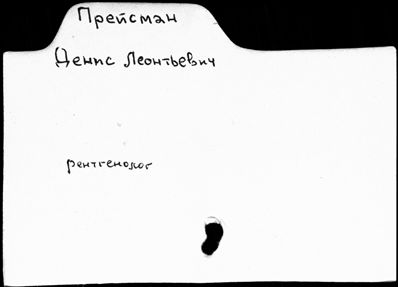 Прейсман
Денис Леонтьевич
рентгенолог